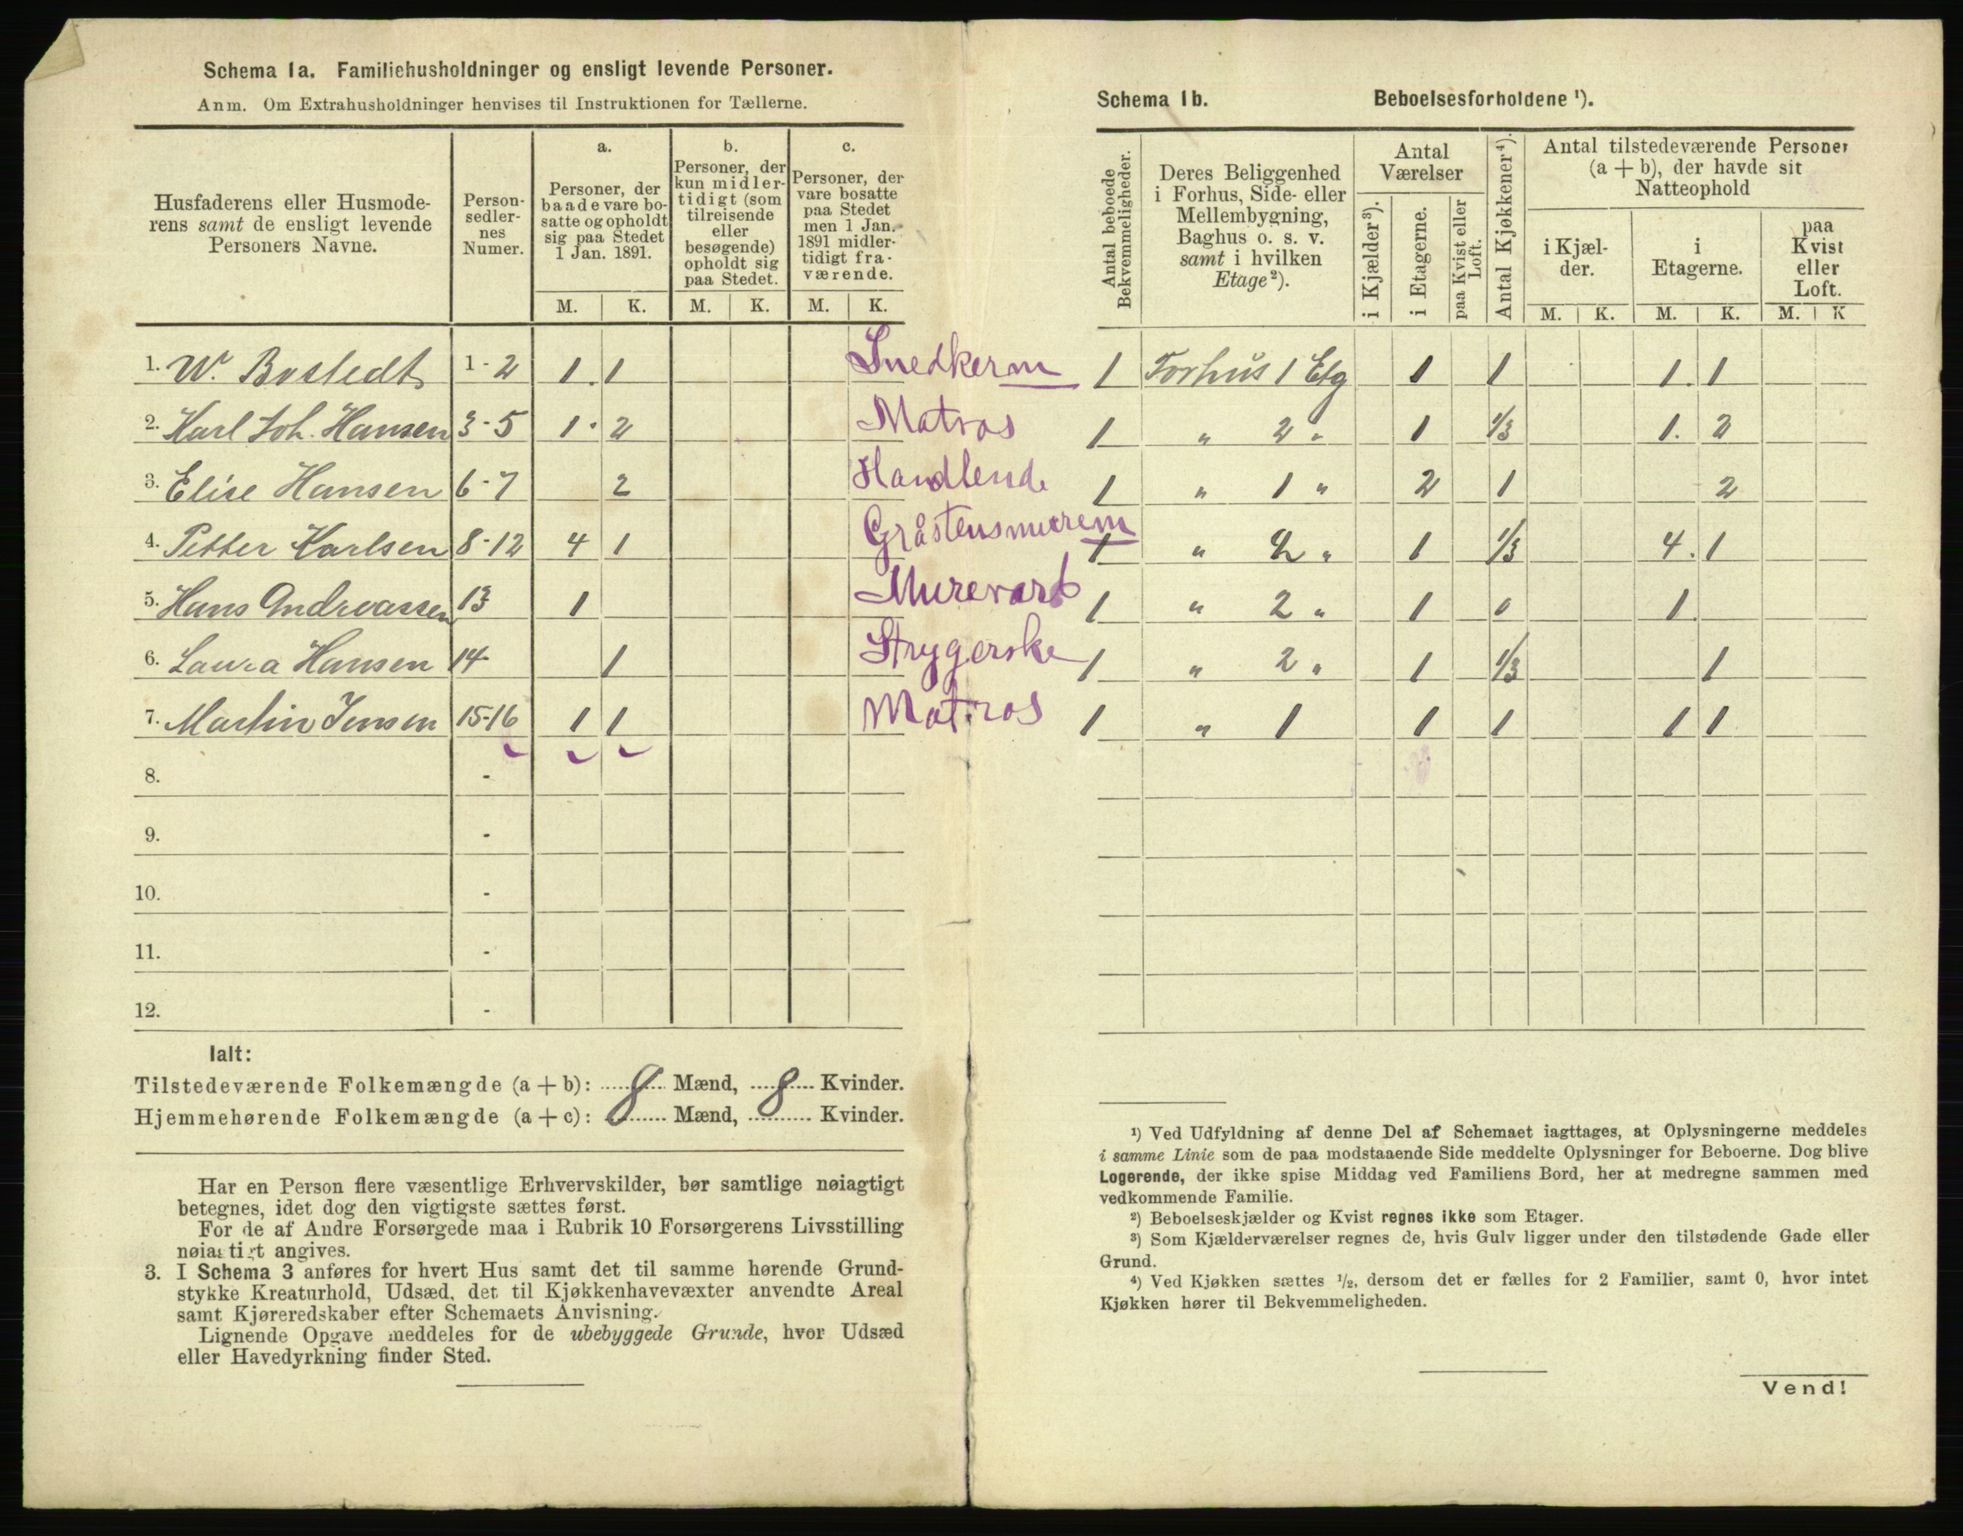 Schema 1a. Familiehusholdninger og ensligt levende Personer.
Anm. Om Extrahusholdninger henvises til Instruktionen for Tællerne.
Husfaderens eller Husmoderens samt de ensligt levende Personers Navne.
Person-sedler-nes Numer.
a.
Personer, der baade vare bosatte og opholdt sig paa Stedet 1 Jan. 1891.
b.
Personer, der kun midlertidigt (som tilreisende eller besøgende) opholdt sig paa Stedet.
c.
Personer, der vare bosatte paa Stedet men 1 Jan. 1891 midlertidigt fraværende.
M. K. M. K. M. K.
1. W. Bostedt 1-2 1. 1 Snedkerm
2. Karl Joh. Hansen 3-5 1. 2 Matros
3. Elise Hansen 6-7 2 Handlende
4. Petter Karlsen 8-12 4 1 Gråstensmurerm
5. Hans Andreassen 13 1 Murerarb
6. Laura Hansen 14 1 Strygerske
7. Martin Jensen 15-16 1 1 Matros
8. -
9. -
10. -
11. -
12. -
Ialt:
Tilstedeværende Folkemængde (a + b): 8 Mænd, 8 Kvinder.
Hjemmehørende Folkemængde (a + c): Mænd, Kvinder.
Har en Person flere væsentlige Erhvervskilder, bør samtlige nøiagtigt
betegnes, idet dog den vigtigste sættes først.
For de af Andre Forsørgede maa i Rubrik 10 Forsørgerens Livsstilling
nøiagtigt angives.
3. I Schema 3 anføres for hvert Hus samt det til samme hørende Grund-
stykke Kreaturhold, Udsæd, det til Kjøkkenhavevæxter anvendte Areal
samt Kjøreredskaber efter Schemaets Anvisning.
Lignende Opgave meddeles for de ubebyggede Grunde, hvor Udsæd
eller Havedyrkning finder Sted.
Schema 1b. Beboelsesforholdene ¹).
Antal beboede Bekvemmeligheder.
Deres Beliggenhed i Forhus, Side- eller Mellembygning, Baghus o. s. v. samt i hvilken Etage ²).
Antal Værelser
i Kjælder ³).
i Etagerne.
paa Kvist eller Loft.
Antal Kjøkkener ⁴).
Antal tilstedeværende Personer (a + b), der havde sit Natteophold
i Kjælder.
i Etagerne.
paa Kvist eller Loft.
M. K. M. K. M. K
1 Forhus 1 Etg 1 1 1. 1
1 " 2 " 1 1/3 1. 2
1 " 1 " 2 1 2
1 " 2 " 1 1/3 4. 1
1 " 2 " 1 0 1.
1 " 2 " 1 1/3 1
1 " 1 1 1 1 1
¹) Ved Udfyldning af denne Del af Schemaet iagttages, at Oplysningerne meddeles
i samme Linie som de paa modstaaende Side meddelte Oplysninger for Beboerne. Dog blive
Logerende, der ikke spise Middag ved Familiens Bord, her at medregne sammen med
vedkommende Familie.
²) Beboelseskjælder og Kvist regnes ikke som Etager.
³) Som Kjælderværelser regnes de, hvis Gulv ligger under den tilstødende Gade eller
Grund.
⁴) Ved Kjøkken sættes ½, dersom det er fælles for 2 Familier, samt 0, hvor intet
Kjøkken hører til Bekvemmeligheden.
Vend!